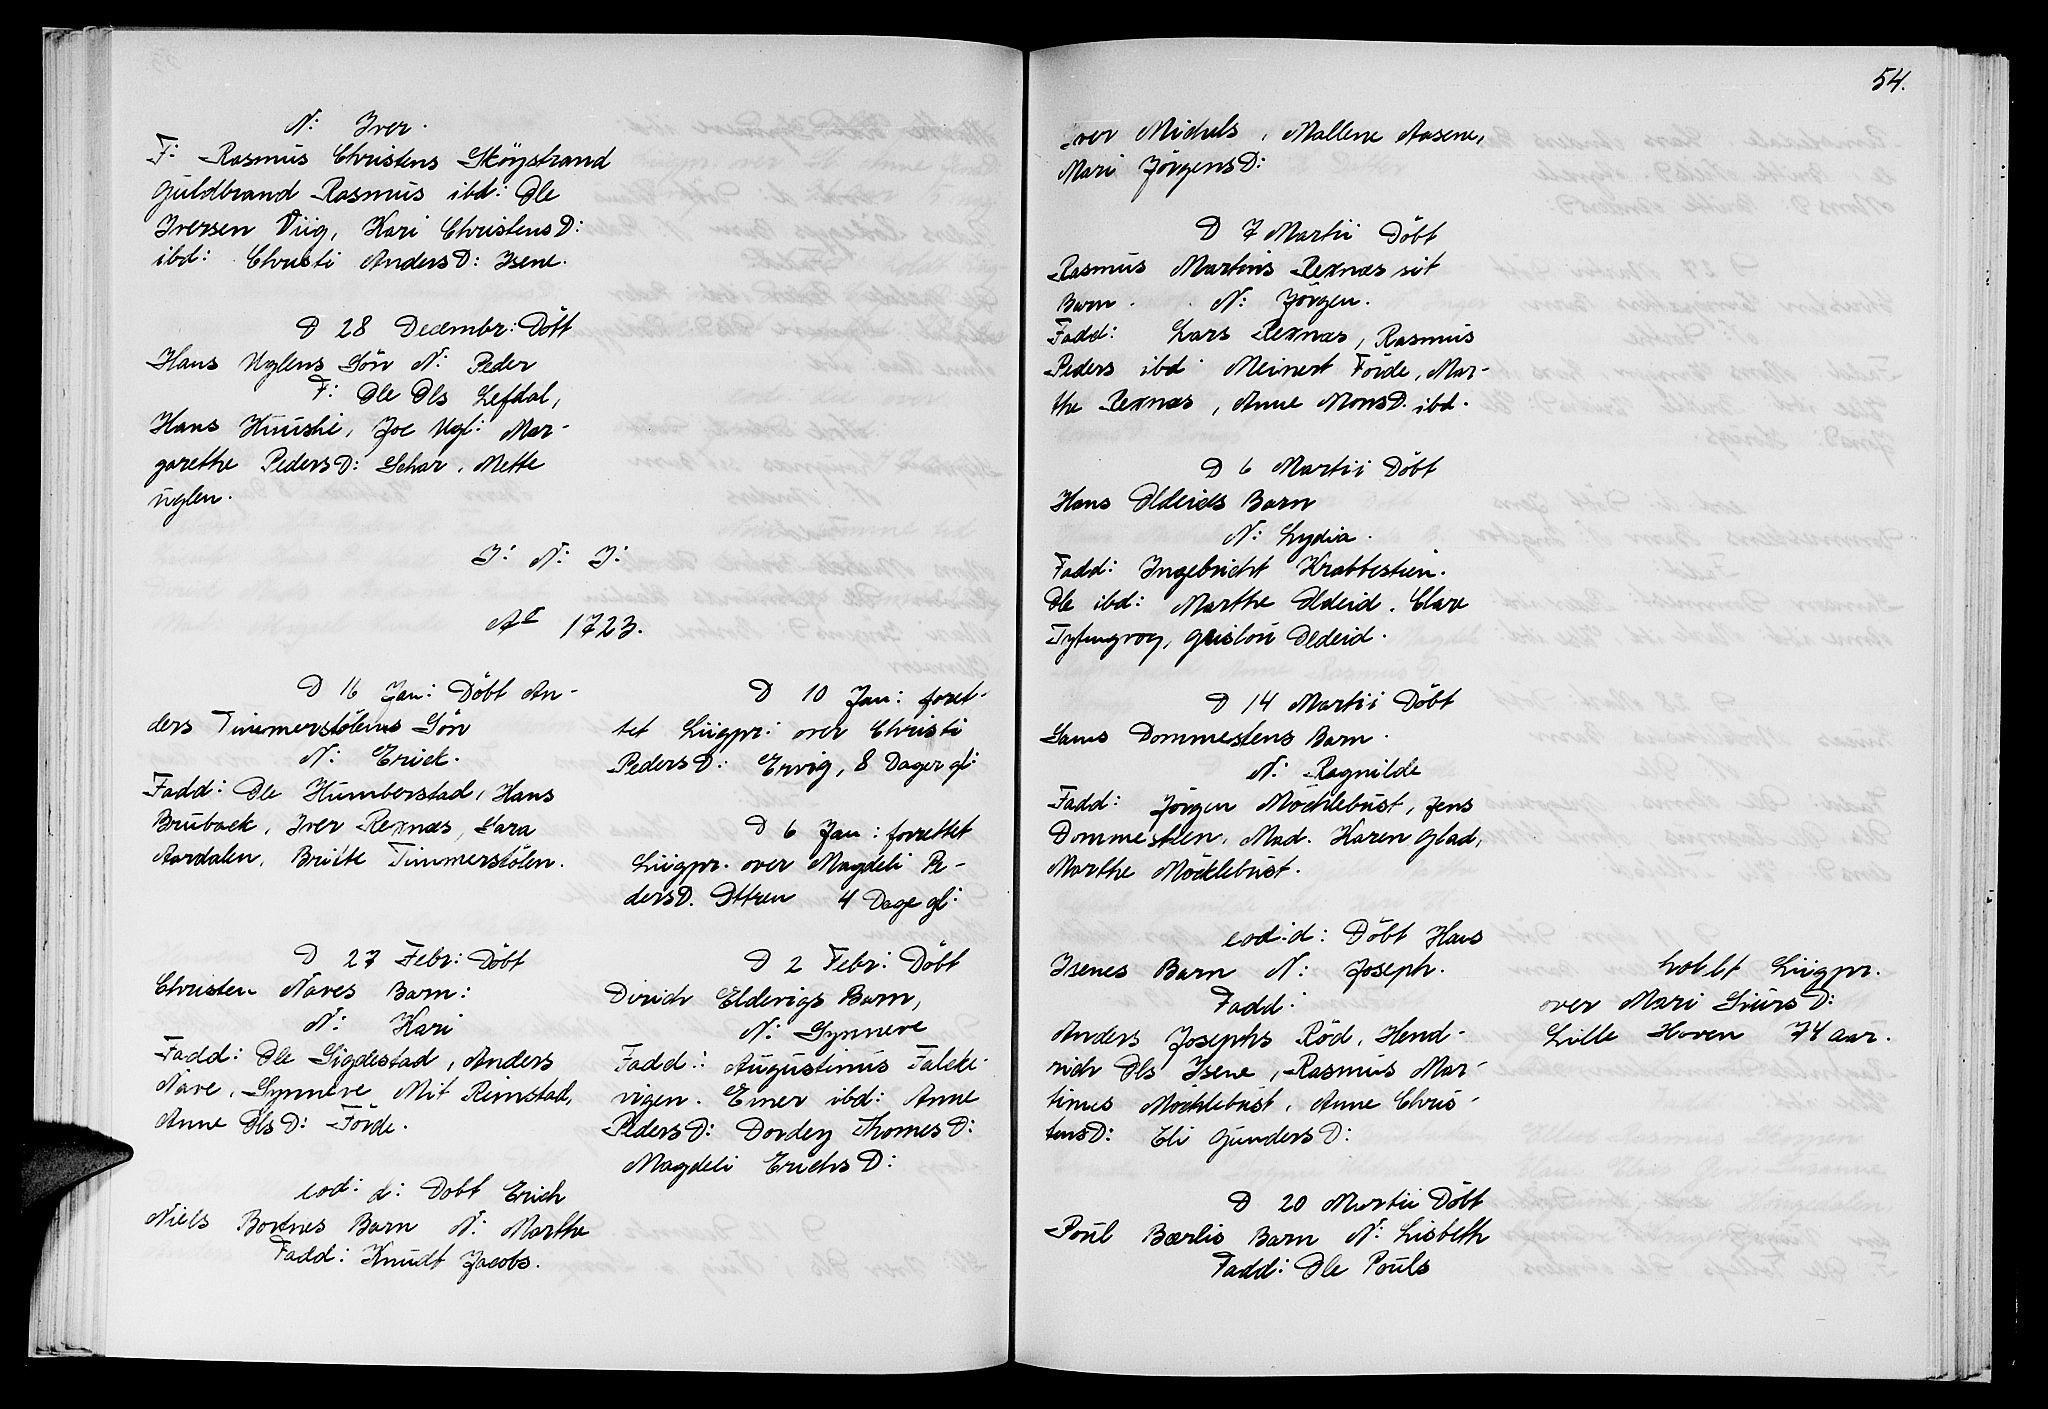 N: Iver.
F: Rasmus Christens Sköystrand
Guldbrand Rasmus ibd: Ole
Iversen Viig, Kari Christens D:
ibd: Christi Anders D: Isene.
D 28 Decembr: Dött
Hans Uglens Sön N: Peder
F: Ole Ols Lefdal,
Hans Huushe, Joe Ugl: Mar-
garethe Peders D: Schar, Mette
uglen.
I: N: I:
Ao 1723.
D 16 Jan: Döbt An-
ders Timmerstölens Sön
N: Erick.
Fadd: Ole Humberstad, Hans
Bruback, Iver Rexnæs, Sara
Aardalen, Britte Timmerstölen.
D 27 Febr: Döbt
Christen Naves Barn:
N: Kari
Fadd: Ole Sigdestad, Anders
Nave, Synneve Mit Reinstad,
Anne Ols D: Förde.
eod: d: Dobt Erich
Niels Bortnes Barn N: Marthe
Fadd: Knudt Jacobs.
D 10 Jan: foret-
tet Liigpr: over Christi
Peders D: Ervig, 8 Dager gl:
D 6 Jan: forrettet
Liigpr. over Magdeli Pe-
ders D. Ottren 4 Dage gl:
D 2 Febr: Döbt
Dirich Eldevigs Barn,
N: Synneve
Fadd: Augustinus Falcke-
vigen. Einer ibd: Anne
Peders D: Dordey Thomes D:
Magdeli Erichs D:
54.
Iver Michels, Mallene Aasene,
Mari Jörgens D:
D 7 Martii Döbt
Rasmus Martins Rexnæs sit
Barn. N: Jörgen.
Fadd: Lars Rexnæs, Rasmus
Peders ibd: Meinert Förde, Mar-
the Rexnæs, Anne Mons D. ibd.
D 6 Martii Döbt
Hans Oldeids Barn
N: Lydia.
Fadd: Ingebricht Krabbestien.
Ole ibd: Marthe Oldeid. Clare
Tytingvog, Grislou Oldeid.
D 14 Martii Döbt
Hans Dommestens Barn.
N: Ragnilde
Fadd: Jörgen Möchlebust, Jens
Dommesteen, Mad. Karen Glad,
Marthe Möcklebust.
eod. d: Döbt Hans
Isenes Barn N: Joseph.
Fadd:
Anders Josephs Röd, Hend-
rich Ols Isene, Rasmus Mar-
tinus Möchlebust, Anne Chris-
tens D: Eli Gunders D:
D 20 Martii Döbt
Poul Bærlis Barn N: Lisbeth
Fadd: Ole Pouls
holdt Liigpr.
over Mari Siurs D:
Lille Hoven 74 aar.